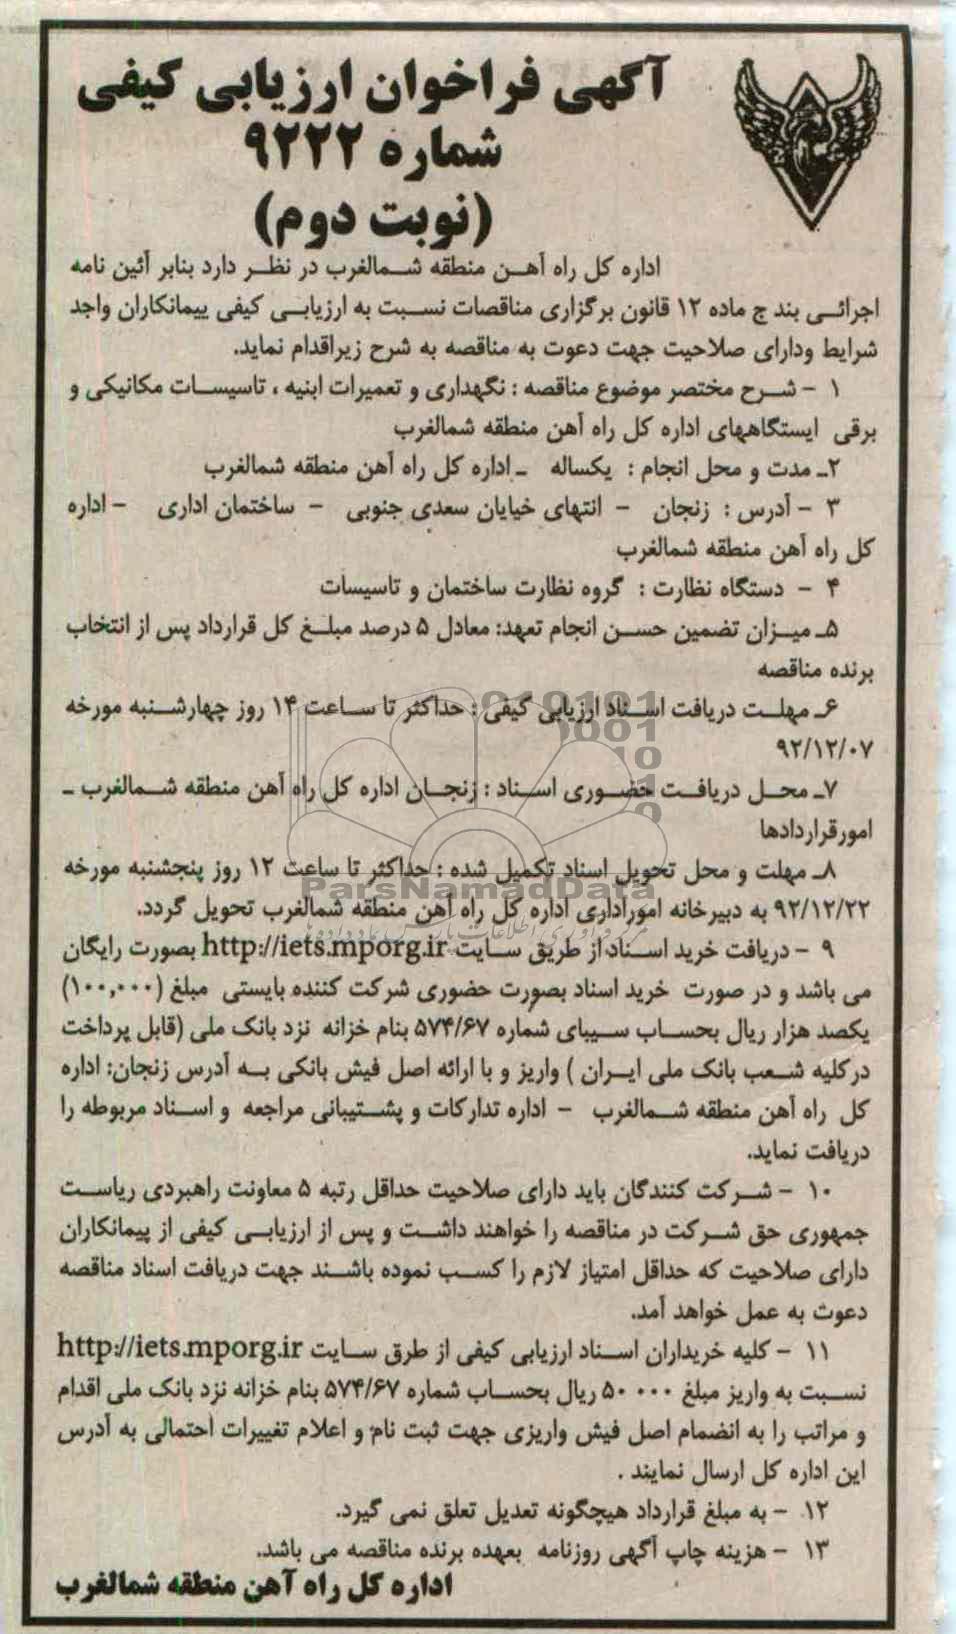 آگهی فراخوان ارزیابی کیفی
شماره ۹۲۲۲
(نوبت دوم)
اداره کل راه آهن منطقه شمالغرب در نظر دارد بنابر آئین نامه
اجرائی بند ج ماده ۱۲ قانون برگزاری مناقصات نسبت به ارزیابی کیفی پیمانکاران واجد
شرایط ودارای صلاحیت جهت دعوت به مناقصه به شرح زیراقدام نماید.
۱ - شرح مختصر موضوع مناقصه : نگهداری و تعمیرات ابنیه ، تاسیسات مکانیکی و
برقی ایستگاههای اداره کل راه آهن منطقه شمالغرب
۲ـ مدت و محل انجام : یکساله ـ اداره کل راه آهن منطقه شمالغرب
۳ - آدرس : زنجان - انتهای خیابان سعدی جنوبی - ساختمان اداری - اداره
کل راه آهن منطقه شمالغرب
۴ - دستگاه نظارت : گروه نظارت ساختمان و تاسیسات
۵ـ میزان تضمین حسن انجام تعهد: معادل ۵ درصد مبلغ کل قرارداد پس از انتخاب
برنده مناقصه
۶ـ مهلت دریافت اسناد ارزیابی کیفی : حداکثر تا ساعت ۱۴ روز چهارشنبه مورخه
۹۲/۱۲/۰۷
۷ـ محل دریافت حضوری اسناد : زنجان اداره کل راه آهن منطقه شمالغرب ـ
امورقراردادها
۸ـ مهلت و محل تحویل اسناد تکمیل شده : حداکثر تا ساعت ۱۲ روز پنجشنبه مورخه
ParsNamadData
۹۲/۱۲/۲۲ به دبیرخانه اموراداری اداره کل راه آهن منطقه شمالغرب تحویل گردد.
۹ - دریافت خرید اسناد از طریق سایت http://iets.mporg.ir بصورت رایگان
می باشد و در صورت خرید اسناد بصورت حضوری شرکت کننده بایستی مبلغ (۱۰۰,۰۰۰)
یکصد هزار ریال بحساب سیبای شماره ۵۷۴/۶۷ بنام خزانه نزد بانک ملی (قابل پرداخت
درکلیه شعب بانک ملی ایران ) واریز و با ارائه اصل فیش بانکی به آدرس زنجان: اداره
کل راه آهن منطقه شمالغرب - اداره تدارکات و پشتیبانی مراجعه و اسناد مربوطه را
دریافت نماید.
۱۰ - شرکت کنندگان باید دارای صلاحیت حداقل رتبه ۵ معاونت راهبردی ریاست
جمهوری حق شرکت در مناقصه را خواهند داشت و پس از ارزیابی کیفی از پیمانکاران
دارای صلاحیت که حداقل امتیاز لازم را کسب نموده باشند جهت دریافت اسناد مناقصه
دعوت به عمل خواهد آمد.
۱۱ - کلیه خریداران اسناد ارزیابی کیفی از طرق سایت http://iets.mporg.ir
نسبت به واریز مبلغ ۵۰ ۰۰۰ ریال بحساب شماره ۵۷۴/۶۷ بنام خزانه نزد بانک ملی اقدام
و مراتب را به انضمام اصل فیش واریزی جهت ثبت نام و اعلام تغییرات احتمالی به آدرس
این اداره کل ارسال نمایند .
۱۲ - به مبلغ قرارداد هیچگونه تعدیل تعلق نمی گیرد.
۱۳ - هزینه چاپ آگهی روزنامه بعهده برنده مناقصه می باشد.
اداره کل راه آهن منطقه شمالغرب